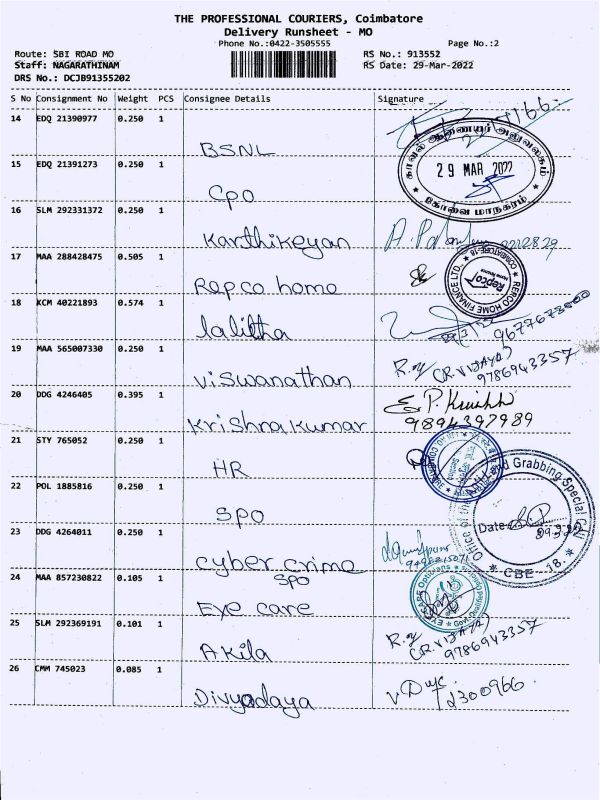 THE PROFESSIONAL COURIERS, Coimbatore
Delivery Runsheet - MO
Phone No.:0422-3505555
Page No.:2
Route: SBI ROAD MO
RS No.: 913552
Staff: NAGARATHINAM
RS Date: 29-Mar-2022
DRS No.: DCJB91355202
S No Consignment No Weight PCS Consignee Details Signature
14 EDQ 21390977 0.250 1
BSNL
15 EDQ 21391273 0.250 1
காவல் ஆணையர் அலுவலகம்
29 MAR 2022
கோவை மாநகரம்
CPO
16 SLM 292331372 0.250 1
Karthikeyan
17 MAA 288428475 0.505 1
REPCO HOME FINANCE LTD.
COIMBATORE-18
Repco
Repco home
18 KCM 40221893 0.574 1
lalitha
9677673000
19 MAA 565007330 0.250 1
Viswanathan
R.
(R.VIJAYA)
9786943357
20 DDG 4246405 0.395 1
Krishnakumar
9894397989
21 STY 765052 0.250 1
HR
22 POL 1885816 0.250 1
SPO
Office of the Anti Land Grabbing Special Cell
Date
CBE - 18.
23 DDG 4264011 0.250 1
Cyber crime
SPO
24 MAA 857230822 0.105 1
EYE CARE Opticians
Eye care
25 SLM 292369191 0.101 1
Akila
R.
(R.VIJAYA)
9786943357
26 CMM 745023 0.085 1
Divyodaya
2300966.